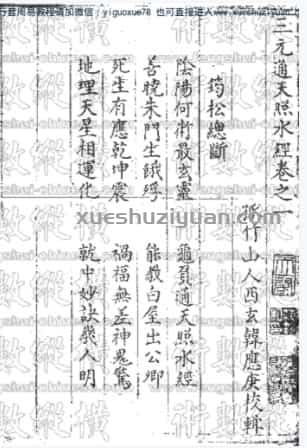 行登周易教程請加微信：yiguoxue78 也可直接进入www.xueshuziyuan.com
三元通天照水經卷之一
孤竹山人西玄韓應庚校輯
筠松總斷
陰陽何術最玄靈
龜頁通天照水經
善曉朱門生餓殍
能教白屋出公卿
死生有應乾坤震
禍福無差神鬼驚
地理天星相運化
就中妙訣幾人明
xueshuziyuan.com
數術縱橫